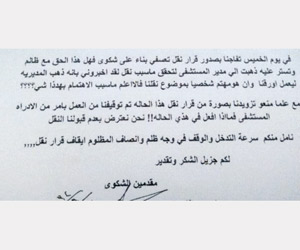 في يوم الخميس تفاجنا بصدور قرار نقل تصفي بناء على شكوى فهل هذا الحق مع ظالم
وتستر عليه ذهبت الي مدير المستشفى لتحقق ماسبب نقل لقد اخبروني بانه ذهب المديريه
ليعمل اورقنا وان حومهتم شخصيا بموضوع نقلنا فالااعلم ماسبب الاهتمام بهددا شي؟؟؟؟
مع علما منعو تزويدنا بصورة من قرار نقل هذا الحاله تم توقيفنا من العمل بامر من الادراه
المستشفى فمااذا افعل في هذي الحاله!! نحن نعترض بعدم قبولنا النقل
نامل منكم سرعة التدخل والوقف في وجه ظلم وانصاف المظلوم ايقاف قرار نقل,,,,
لكم جزيل الشكر وتقدير
مقدمين الشكوى